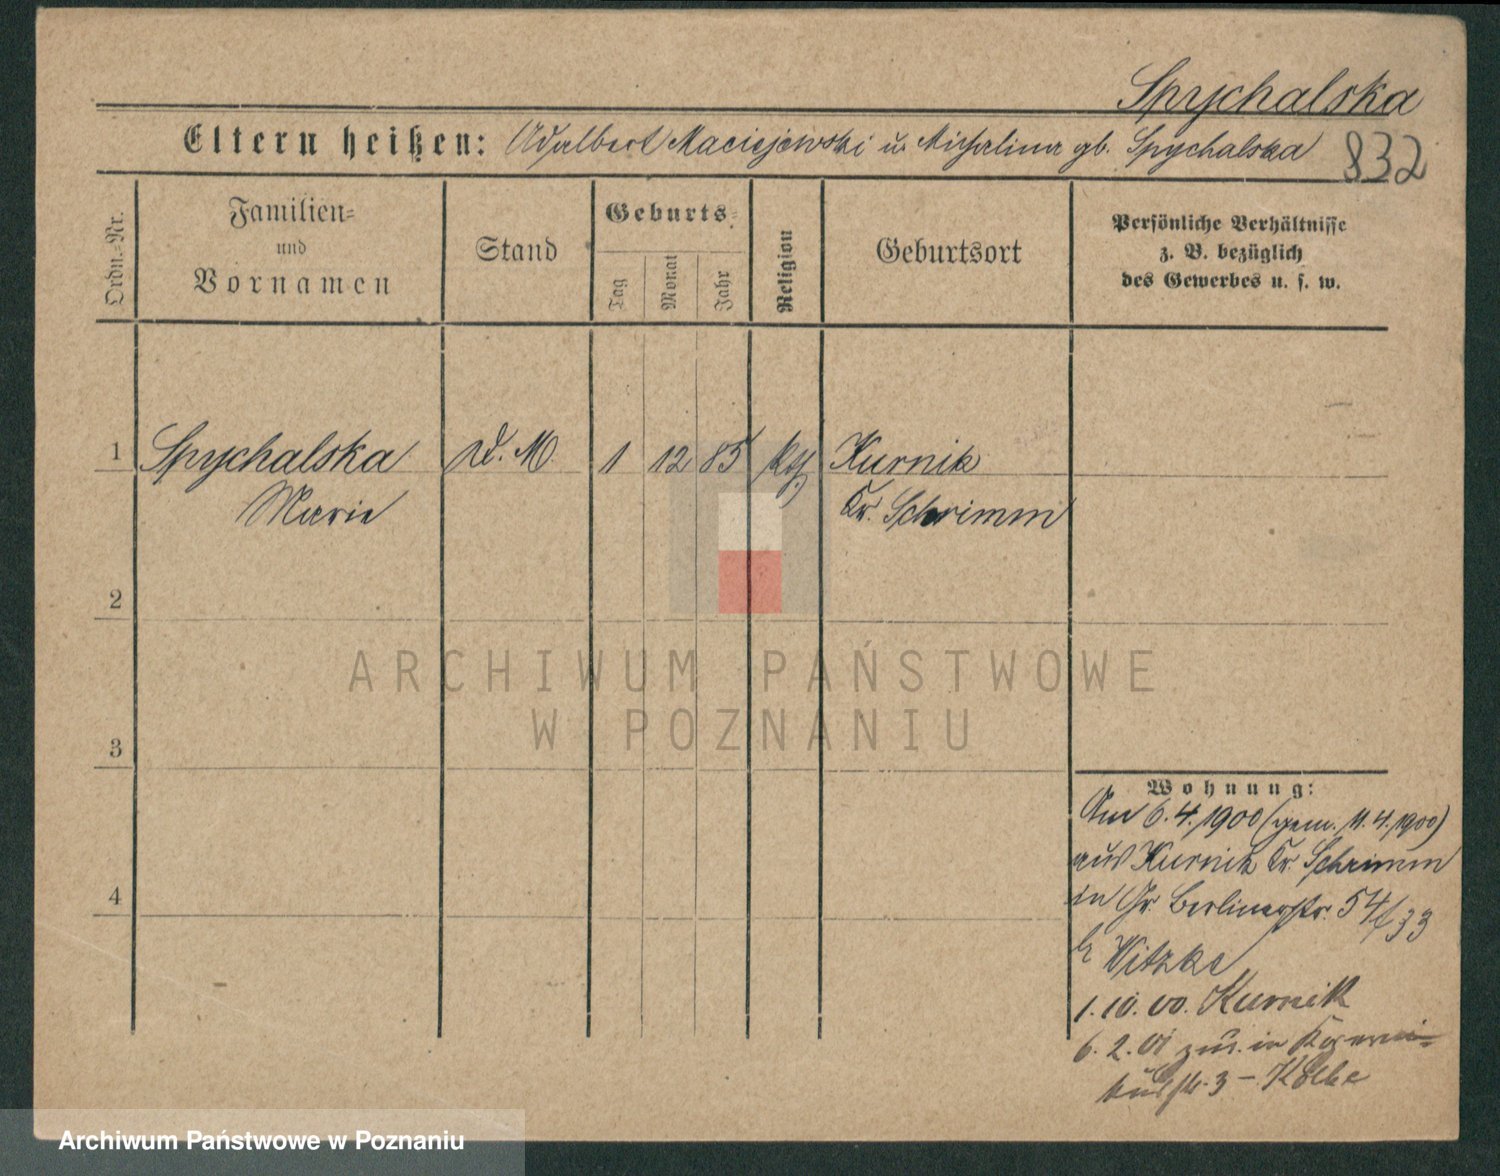 Spychalska
Eltern heißen: Adalbert Maciejewski u. Michalina gb. Spychalska 832
Ordn.-Nr.
Familien- und Vornamen
Stand
Geburts-
Tag
Monat
Jahr
Religion
Geburtsort
Persönliche Verhältnisse
z. B. bezüglich
des Gewerbes u. s. w.
1 Spychalska d. M. 1 12 85 kth Kurnik
Marie Kr. Schrimm
2
3
4
Wohnung:
Am 6.4.1900 (gem. 11.4.1900)
aus Kurnik Kr. Schrimm
in Gr. Berlinerstr. 54/33
b Witzke
1.10.00. Kurnik
6.2.01 zur. in
3 - Kolbe
ARCHIWUM PAŃSTWOWE
W POZNANIU
Archiwum Państwowe w Poznaniu